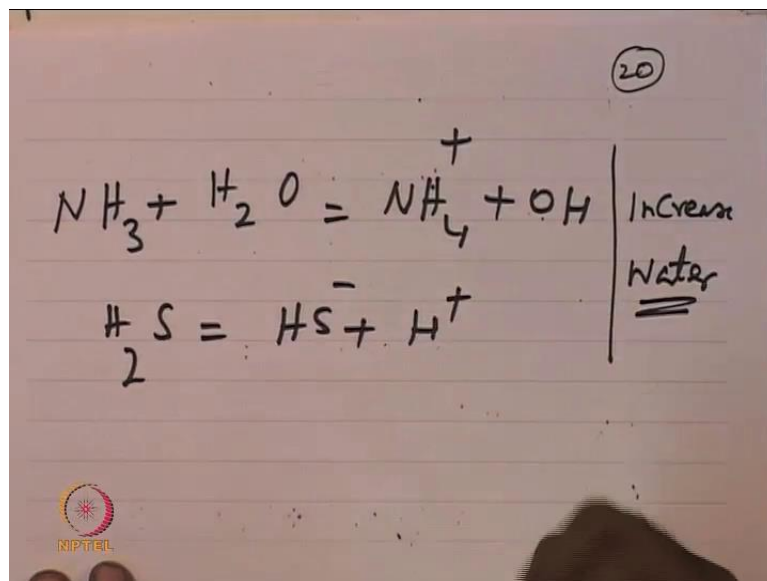 20
NH₃ + H₂O = NH₄⁺ + OH
H₂S = HS⁻ + H⁺
Increase
Water
NPTEL